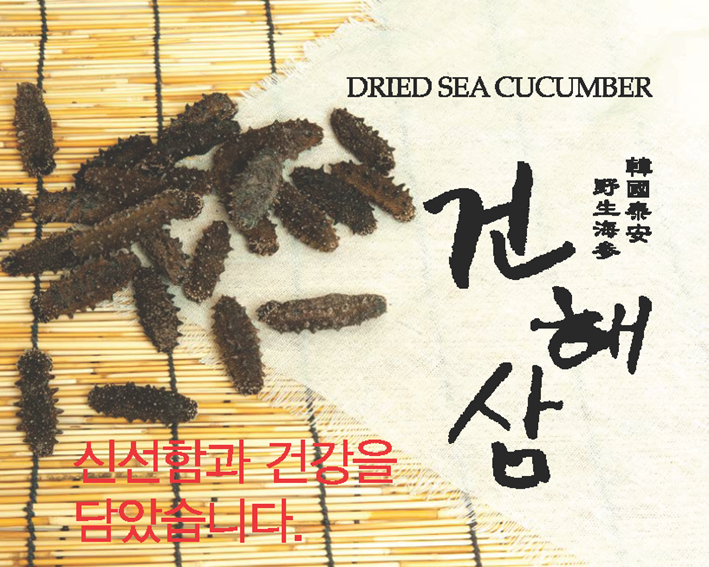 DRIED SEA CUCUMBER
韓國泰安
野生海參
건
해
삼
신선함과 건강을
담았습니다.